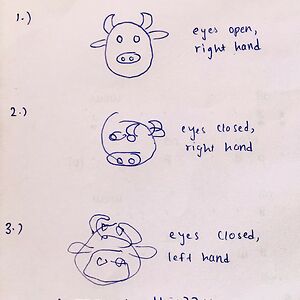 1.)
eyes open,
right hand
2.)
eyes closed,
right hand
3.)
eyes closed,
left hand